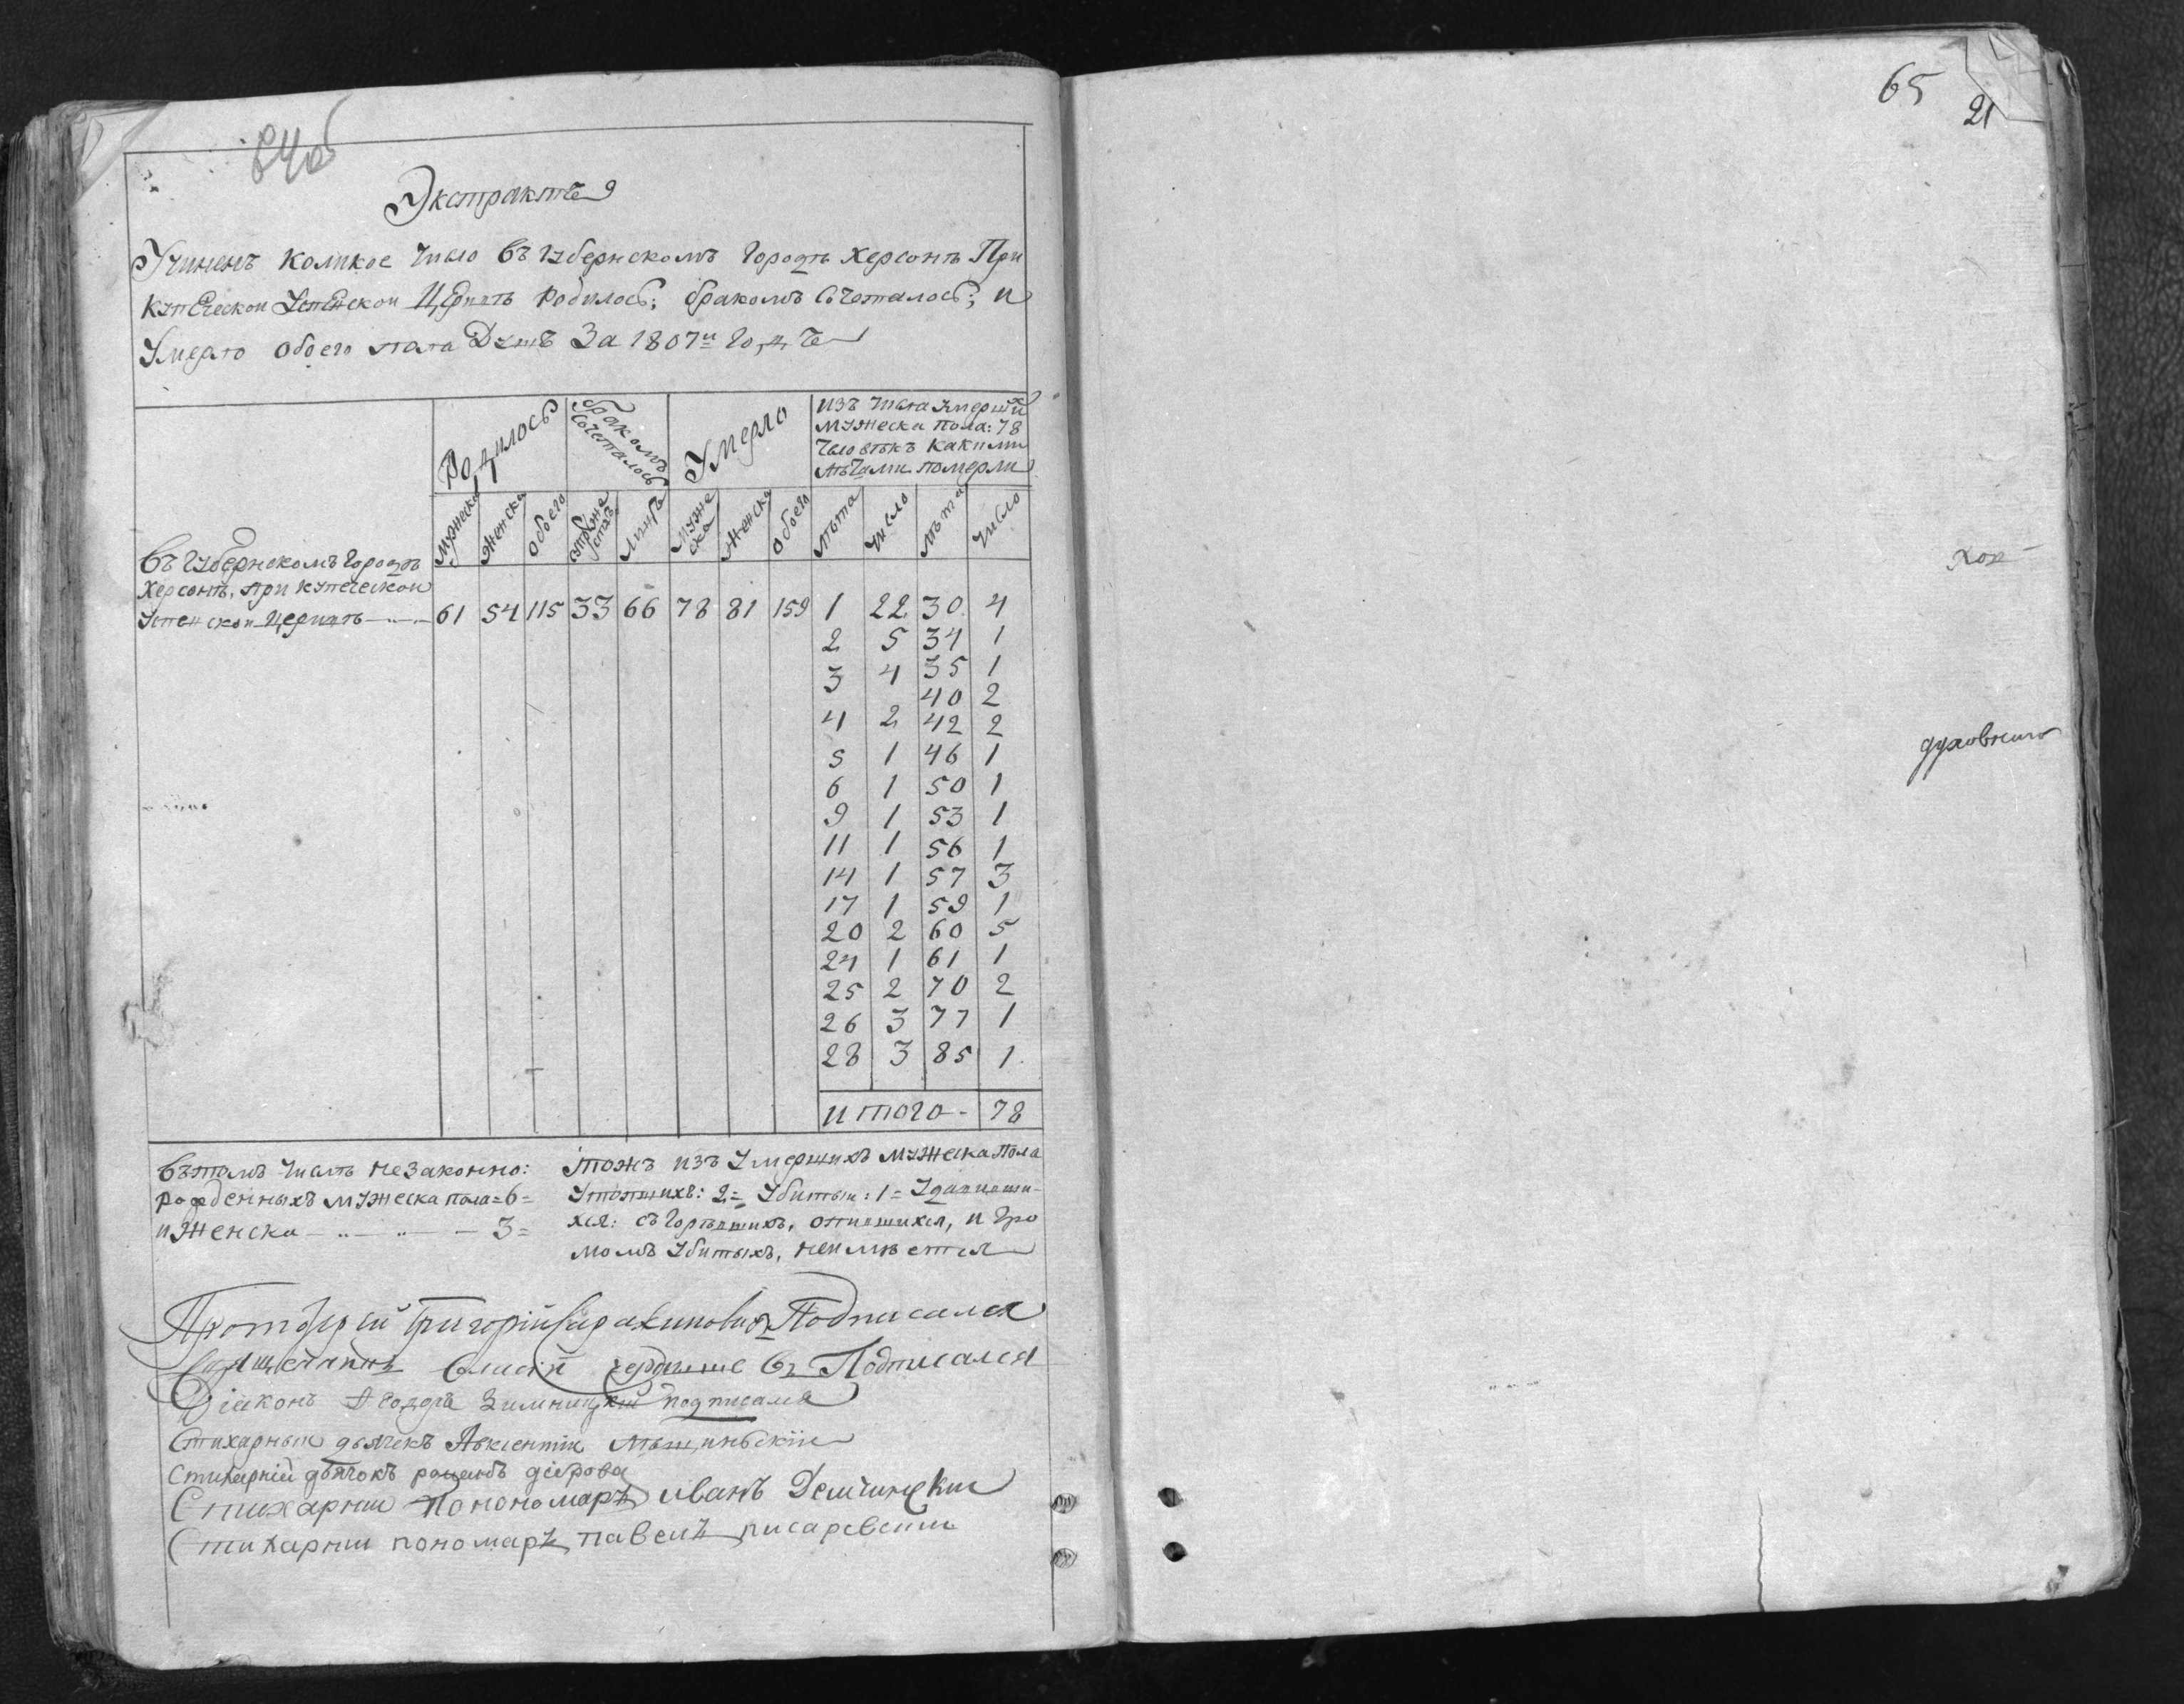 64об
Экстрактъ
Учиненъ коликое число въ губернскомъ городѣ Херсонѣ При
купеческой Успенской Церквѣ родилось; бракомъ сочеталось; и
Умерло обоего пола Душъ За 1807й годъ
Родилось
бракомъ сочеталось
Умерло
изъ числа умершихъ
мужеска пола: 78
человѣкъ какими
лѣтами померли
Мужеска Женска Обоего супружествъ лицъ Мужеска Женска Обоего лѣта число лѣта число
Въ губернскомъ городѣ
Херсонѣ, при купеческой
Успенской церквѣ 61 54 115 33 66 78 81 159 1 22 30 4
2 5 34 1
3 4 35 1
40 2
4 2 42 2
5 1 46 1
6 1 50 1
9 1 53 1
11 1 56 1
14 1 57 3
17 1 59 1
20 2 60 5
24 1 61 1
25 2 70 2
26 3 77 1
28 3 85 1
итого - 78
Въ томъ числѣ незаконно:
рожденныхъ мужеска пола = 6 =
и Женска 3 =
тожъ изъ умершихъ мужеска пола
Утопшихъ: 2 = Убитыи: 1 = Удавивши-
хся: сгорѣвшихъ, опившихся, и гро
момъ убитыхъ, неимѣется
Протоіерей Григорій Подписался
Священникъ Подписался
Діаконъ Ѳеодоръ Зимницкій подписался
Стихарный дьячекъ Авксентіи
Стихарній дьячокъ
Стихарнии Пономаръ иванъ
Стихарнии пономаръ павелъ писаревскии
65
21
духовнаго